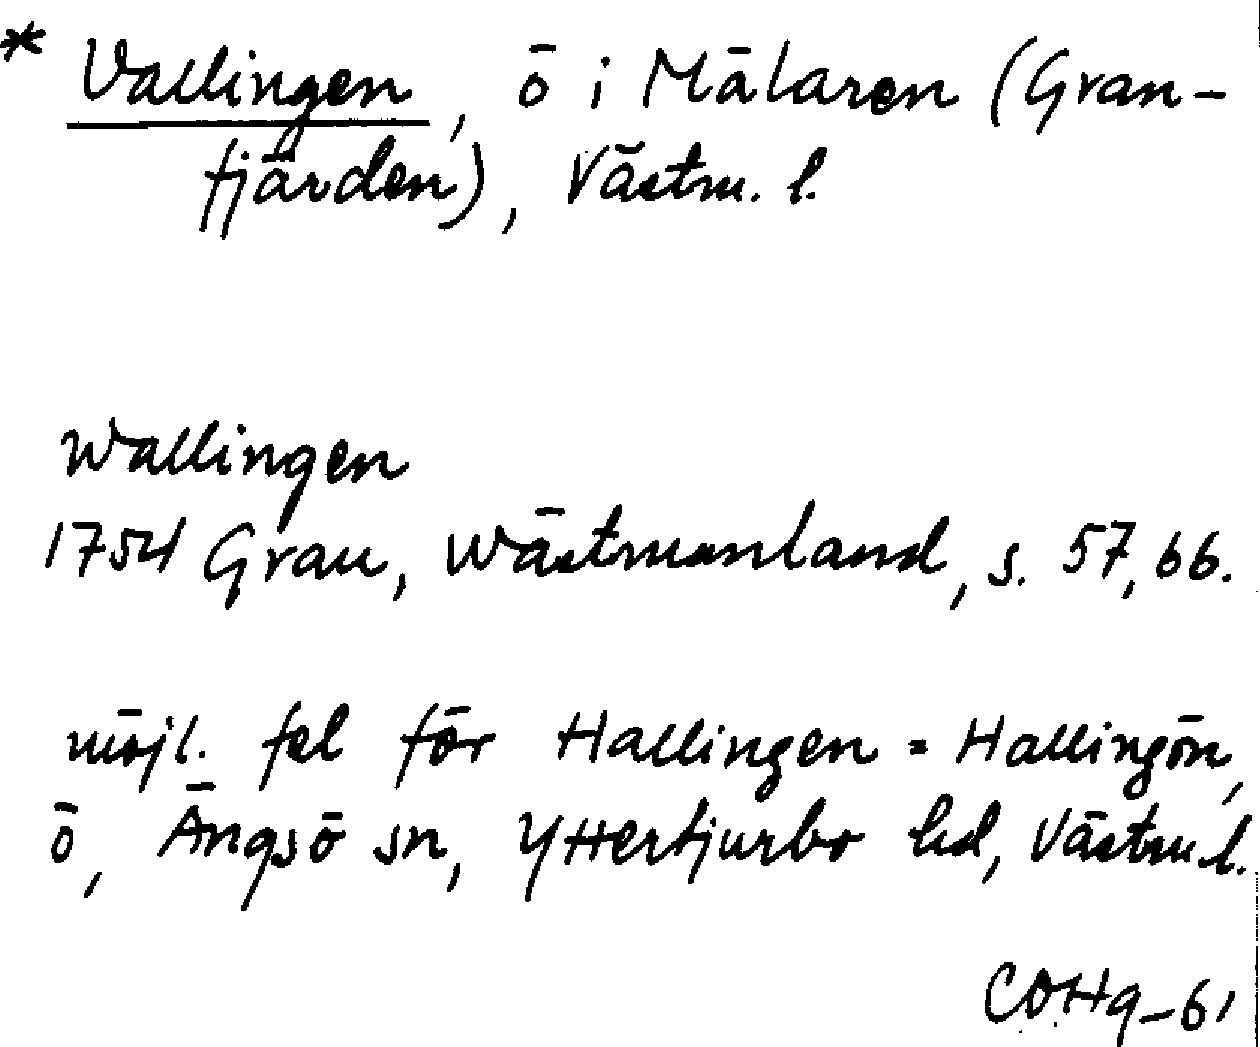 * Vallingen, ö i Mälaren (Gran-
fjärden), Västm. l.
Wallingen
1754 Grau, Wästmanland, s. 57, 66.
möjl. fel för Hallingen = Hallingön,
ö, Ängsö sn, Yttertjurbo hd, Västm l.
COHg-61